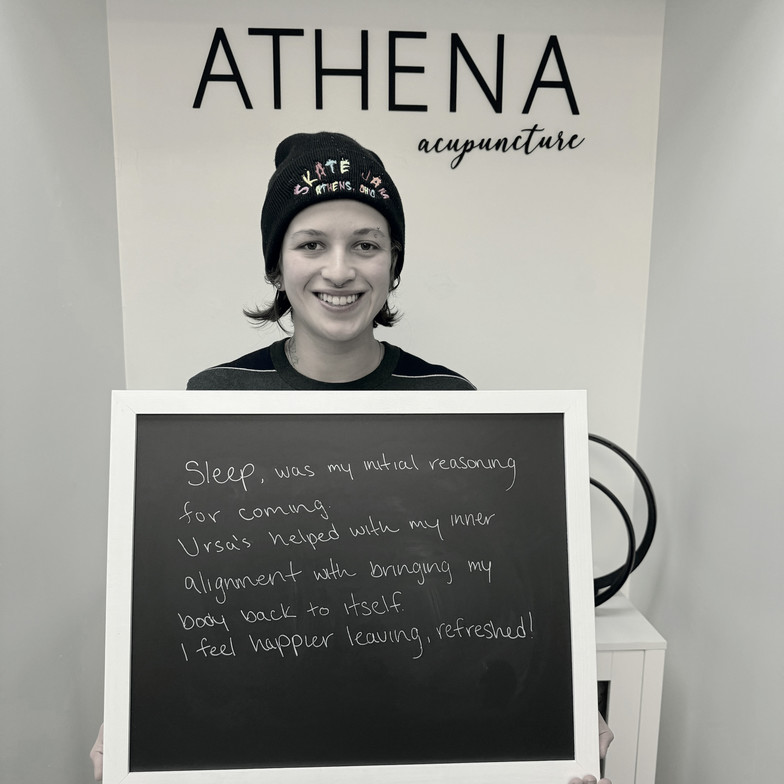 ATHENA
acupuncture
SKATE JAM
ATHENS, OHIO
Sleep, was my initial reasoning
for coming.
Ursa's helped with my inner
alignment with bringing my
body back to itself.
I feel happier leaving, refreshed!